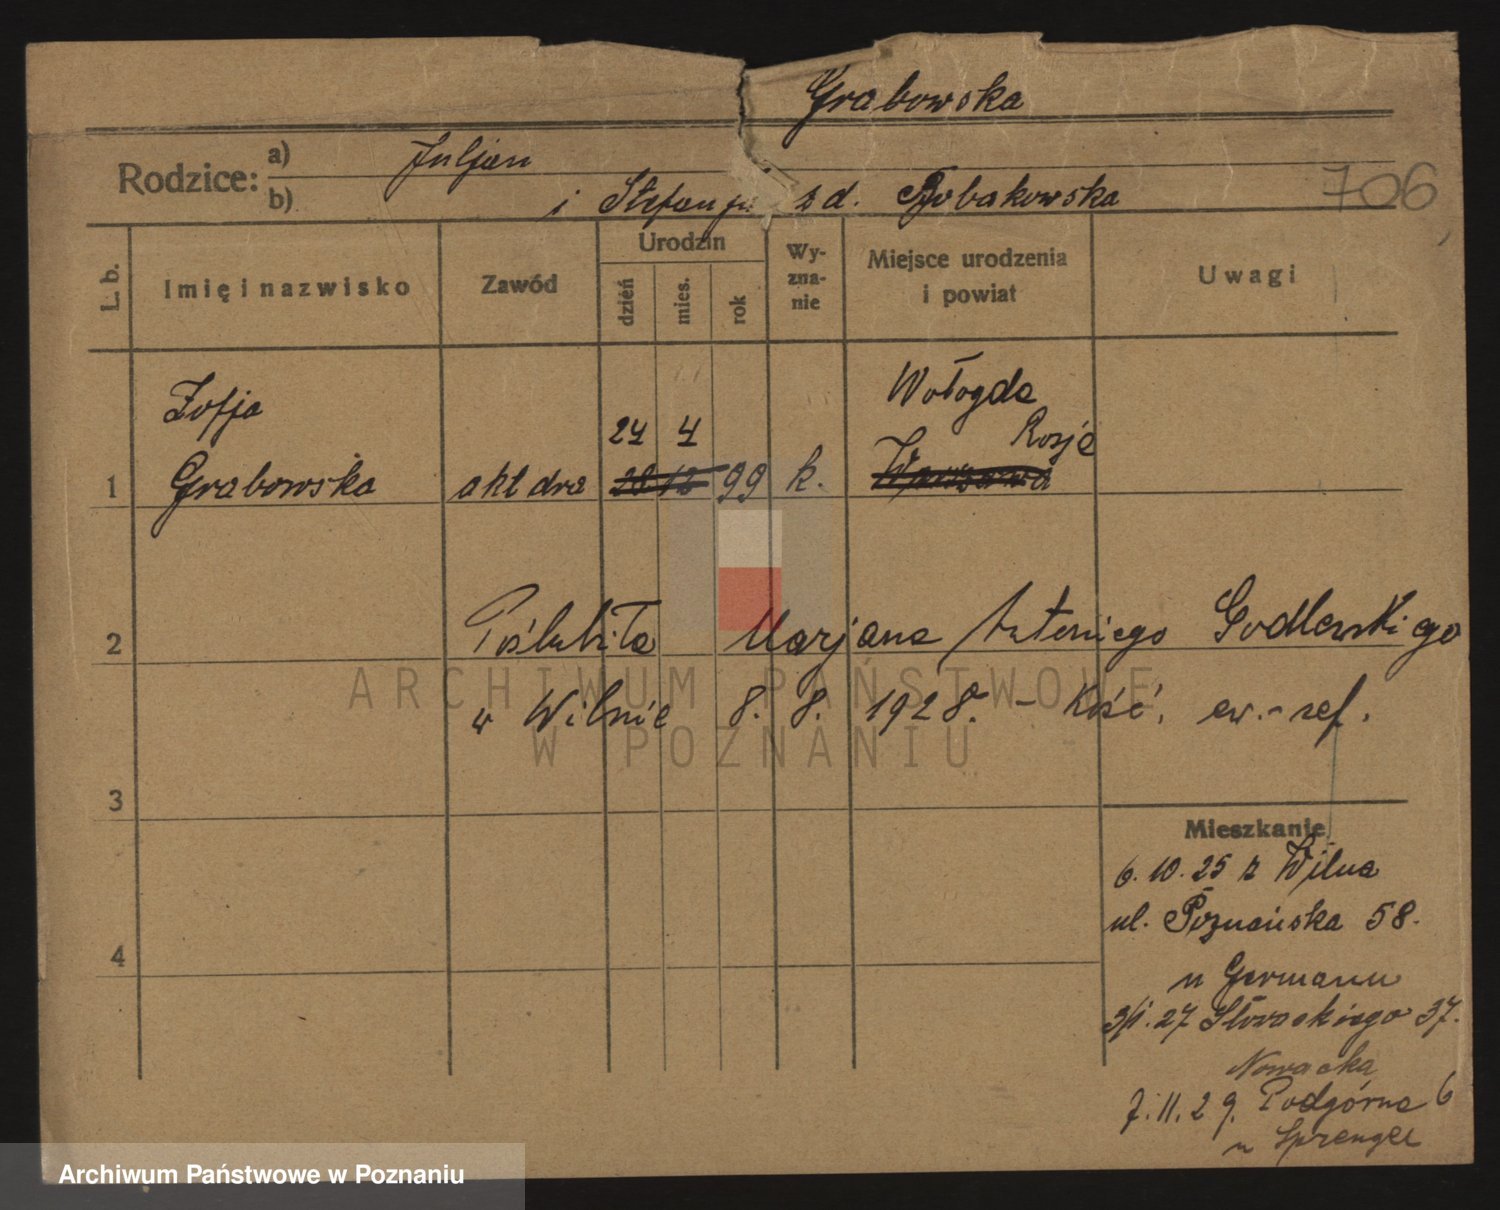 Grabowska
Rodzice: a) Juljan
b) i Stefanja z d. Bobakowska
706
L. b.
Imię i nazwisko
Zawód
Urodzin
dzień
mies.
rok
Wy-
zna-
nie
Miejsce urodzenia
i powiat
Uwagi
Zofja
Wołogda
24 4
Rosje
1 Grabowska aktorka 28 12 99 k. Warszawa
2 Poślubiła Marjana Antoniego Godlewskiego
w Wilnie 8. 8. 1928. - Kość. ew.-ref.
3
Mieszkanie
6. 10. 25 z Wilna
ul. Poznańska 58.
4
u Germann
3/1. 27 Słowackiego 37.
Nowacka
7. 11. 29. Podgórna 6
u Sprenger
ARCHIWUM PAŃSTWOWE
W POZNANIU
Archiwum Państwowe w Poznaniu